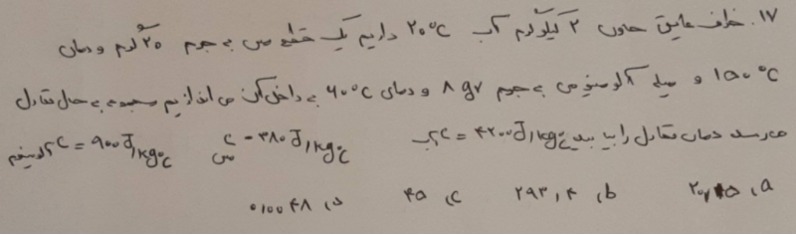 ۱۷. ظرف عایقی حاوی ۲ کیلوگرم آب ۲۰°C داریم یک قطعه مس به جرم ۲۰ گرم و دمای
۱۵۰°C و میله آلومینیومی به جرم ۸ gr و دمای ۶۰°C به داخل آن می اندازیم مجموعه به حال تعادل
می رسد دمای تعادل را بیابید آب C = ۴۲۰۰ J/kg°C مس C = ۳۸۰ J/kg°C آلومینیوم C = ۹۰۰ J/kg°C
a) ۲۰,۱۵ b) ۲۹۳,۴ c) ۴۵ د) ۰,۰۰۴۸